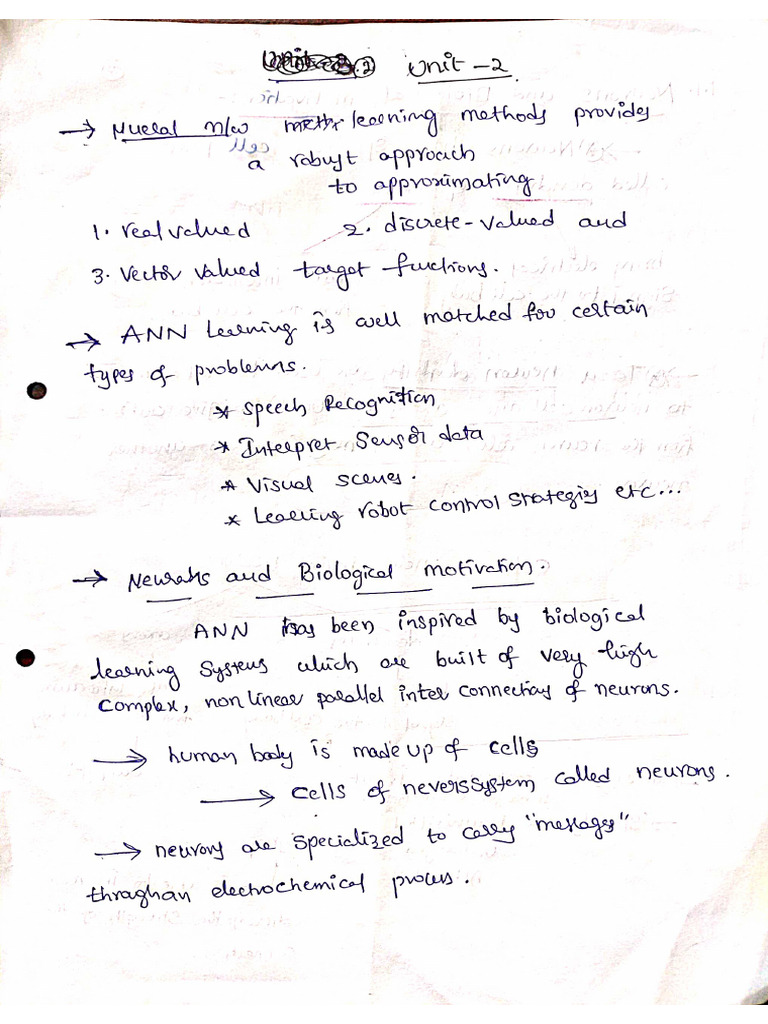 Unit-2
→ Nueral n/w learning methods provides
a robust approach
to approximating
1. real valued 2. discrete-valued and
3. Vector valued target functions.
→ ANN Learning is well matched for certain
types of problems.
* Speech Recognition
* Interpret Sensor data
* Visual scenes.
* Learning robot control strategies etc...
→ Neurans and Biological motivation.
ANN has been inspired by biological
learning systems which are built of very high
Complex, non linear parallel inter connections of neurons.
→ human body is made up of cells
→ cells of nevers system called neurons.
→ neurons are specialized to carry "messages"
thraghan electrochemical process.